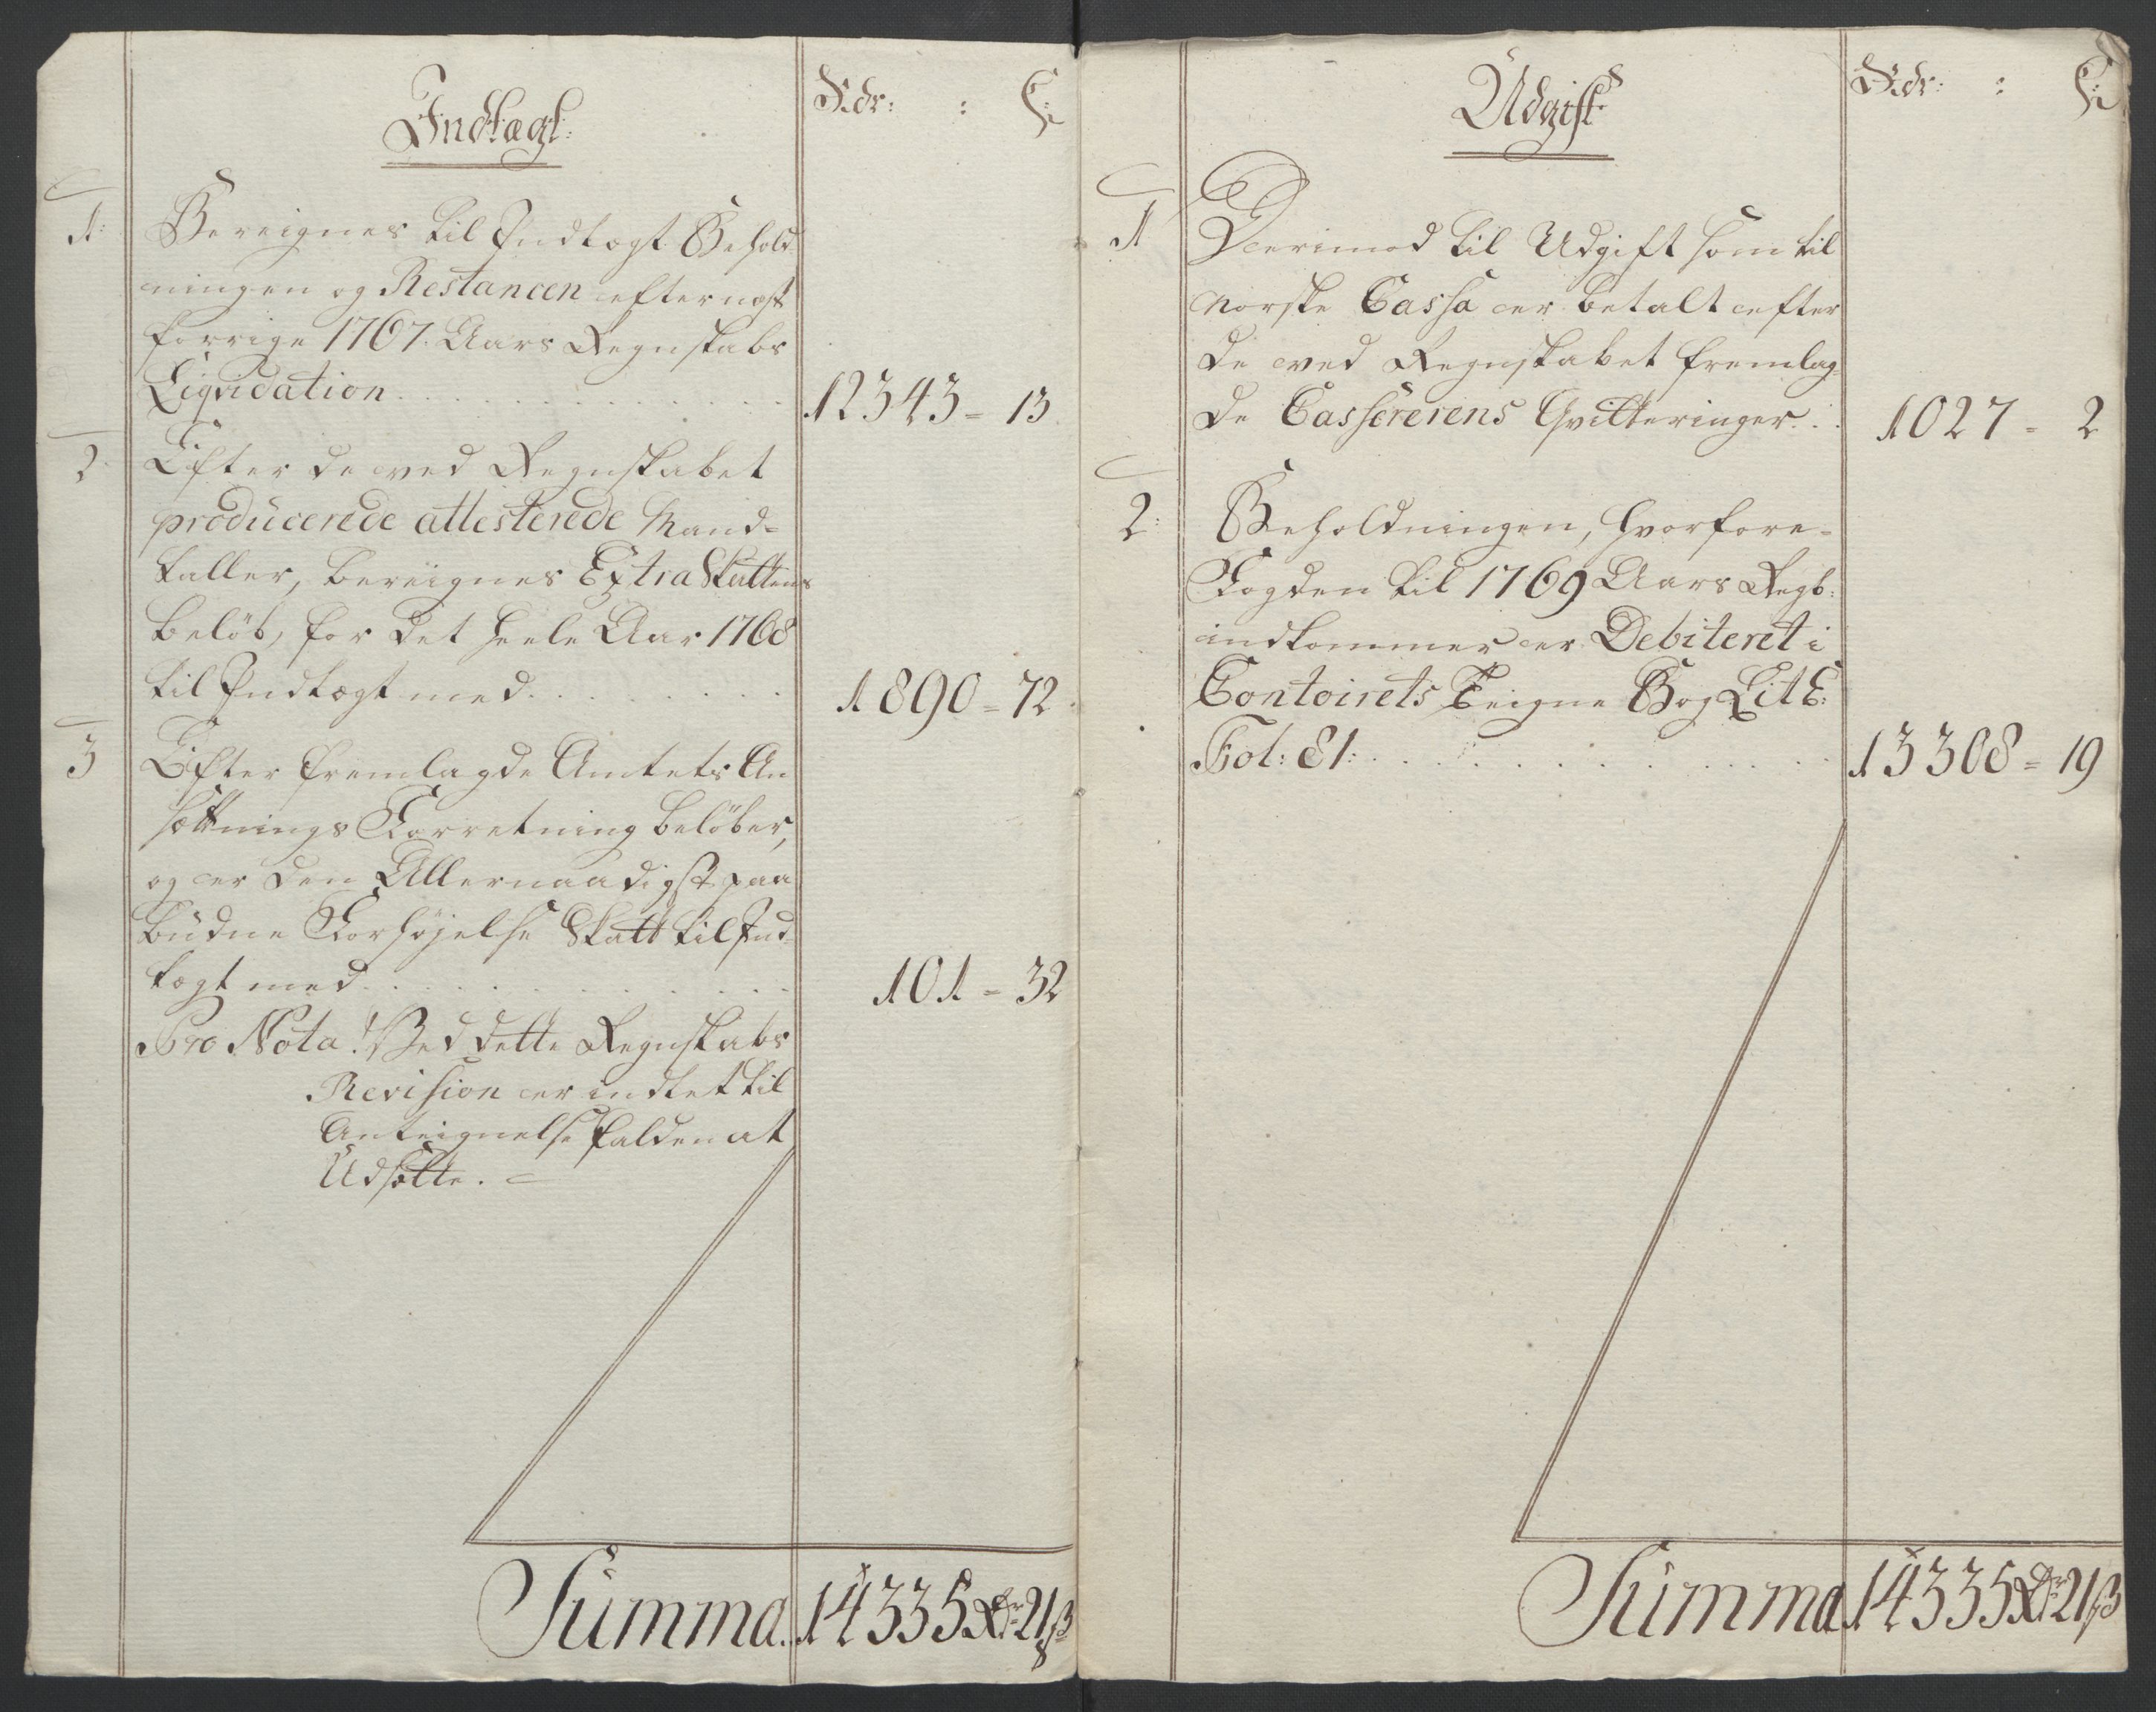 Indtægt:
Rdr: : ß:
1: Bereignes til Indtægt Behold-
ningen og Restancen efter næst
forrige 1767. Aars Regnskabs
Liqvidation. 12343 = 13
2: Efter de ved Regnskabet
producerede attesterede Mand-
taller, bereignes Extra Skattens
beløb, for det heele Aar 1768
til Indtægt med. 1890 = 72
3 Efter fremlagde Amtets An
sættnings Forretning beløber,
og er den Allernaadigst paa
budne Forhøjelse Skatt til Ind-
tægt med. 101 = 32
Pro Nota. Ved dette Regnskabs
Revision er indtet til
Anteignelse falden at
Udsætte. =
Summa. 14335 Rdr 21 ß
Udgift
Rdr: : ß:
1 Derimod til Udgift som til
Norske Cassa er betalt efter
de ved Regnskabet fremlag-
de Cassererens Qvitteringer. 1027 = 2
2: Beholdningen, hvorfore-
Fogden til 1769 Aars Regb:
indkommer er Debiteret i
Contoirets Teigne Bog Lit E:
Fol: 81: 13308 = 19
Summa 14335 Rdr 21 ß